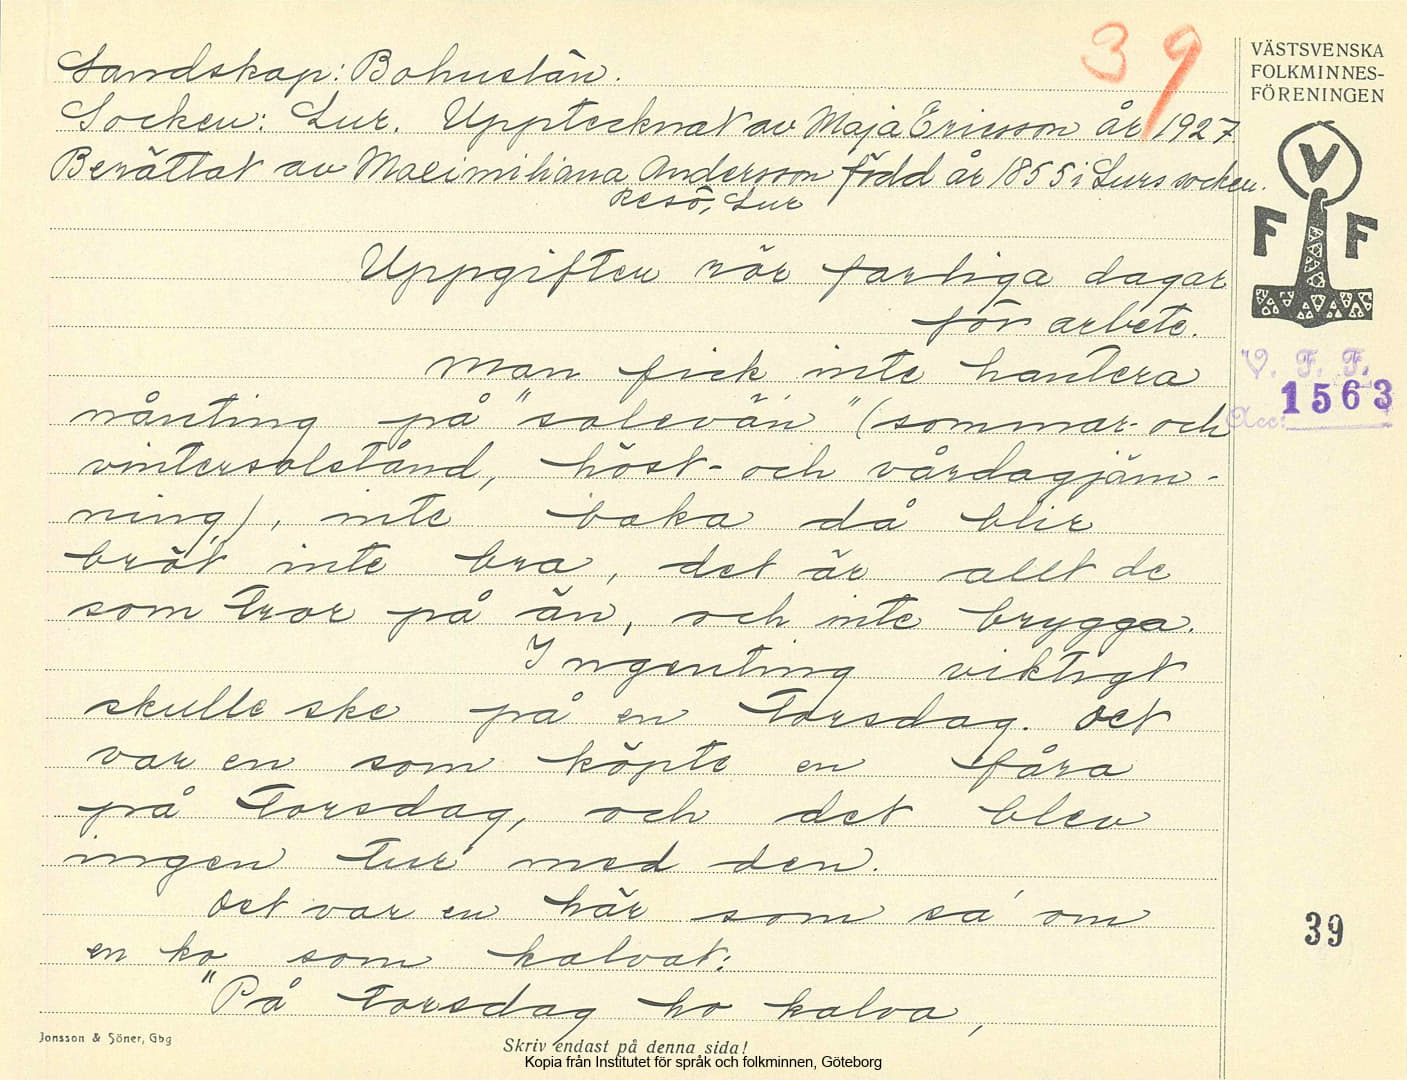 39
VÄSTSVENSKA
FOLKMINNES-
FÖRENINGEN
V
F F
V. F. F.
Acc: 1563
Landskap: Bohuslän.
Socken: Lur. Upptecknat av Maja Ericsson år 1927
Berättat av Maximiliana Andersson född år 1855 i Lurs socken.
Resö, Lur
Uppgifter rör farliga dagar
för arbete.
Man fick inte hantera
nånting på "solevän" (sommar- och
vintersolstånd, höst- och vårdagjäm-
ning), inte baka då blir
bröt inte bra, det är allt de
som tror på än, och inte brygga.
Ingenting viktigt
skulle ske på en torsdag. Det
var en som köpte en fåra
på torsdag, och det blev
ingen tur med den.
Det var en här som sa' om
en ko som kalvat:
"På torsdag ho kalva,
39
Jonsson & Söner, Gbg
Skriv endast på denna sida!
Kopia från Institutet för språk och folkminnen, Göteborg